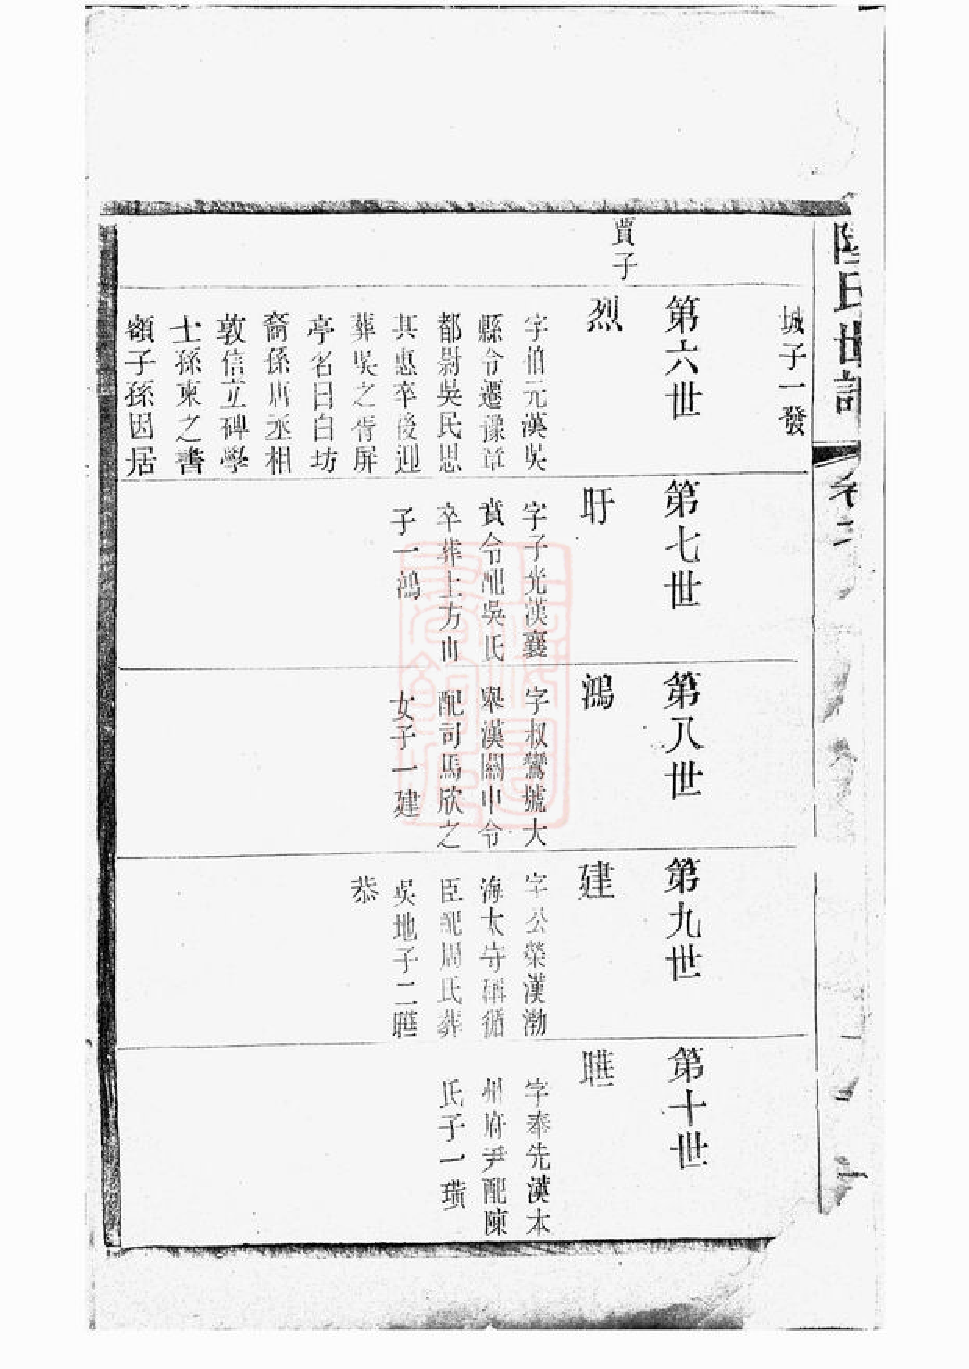 陸氏世譜
卷二
城子一發
賈子
第六世
烈
字伯元漢吳
縣令遷豫章
都尉吳民思
其惠卒後迎
葬吳之胥屏
亭名曰白坊
裔係唐丞相
敦信立碑學
士孫柬之書
額子孫因居
第七世
盱
字子光漢襄
賁令配吳氏
卒葬上方山
子一鴻
第八世
鴻
字叔鸞號大
舉漢關中令
配司馬欣之
女子一建
第九世
建
字公榮漢渤
海太守稱循
臣配周氏葬
吳地子二曄
恭
第十世
曄
字奉先漢本
州府尹配陳
氏子一璜